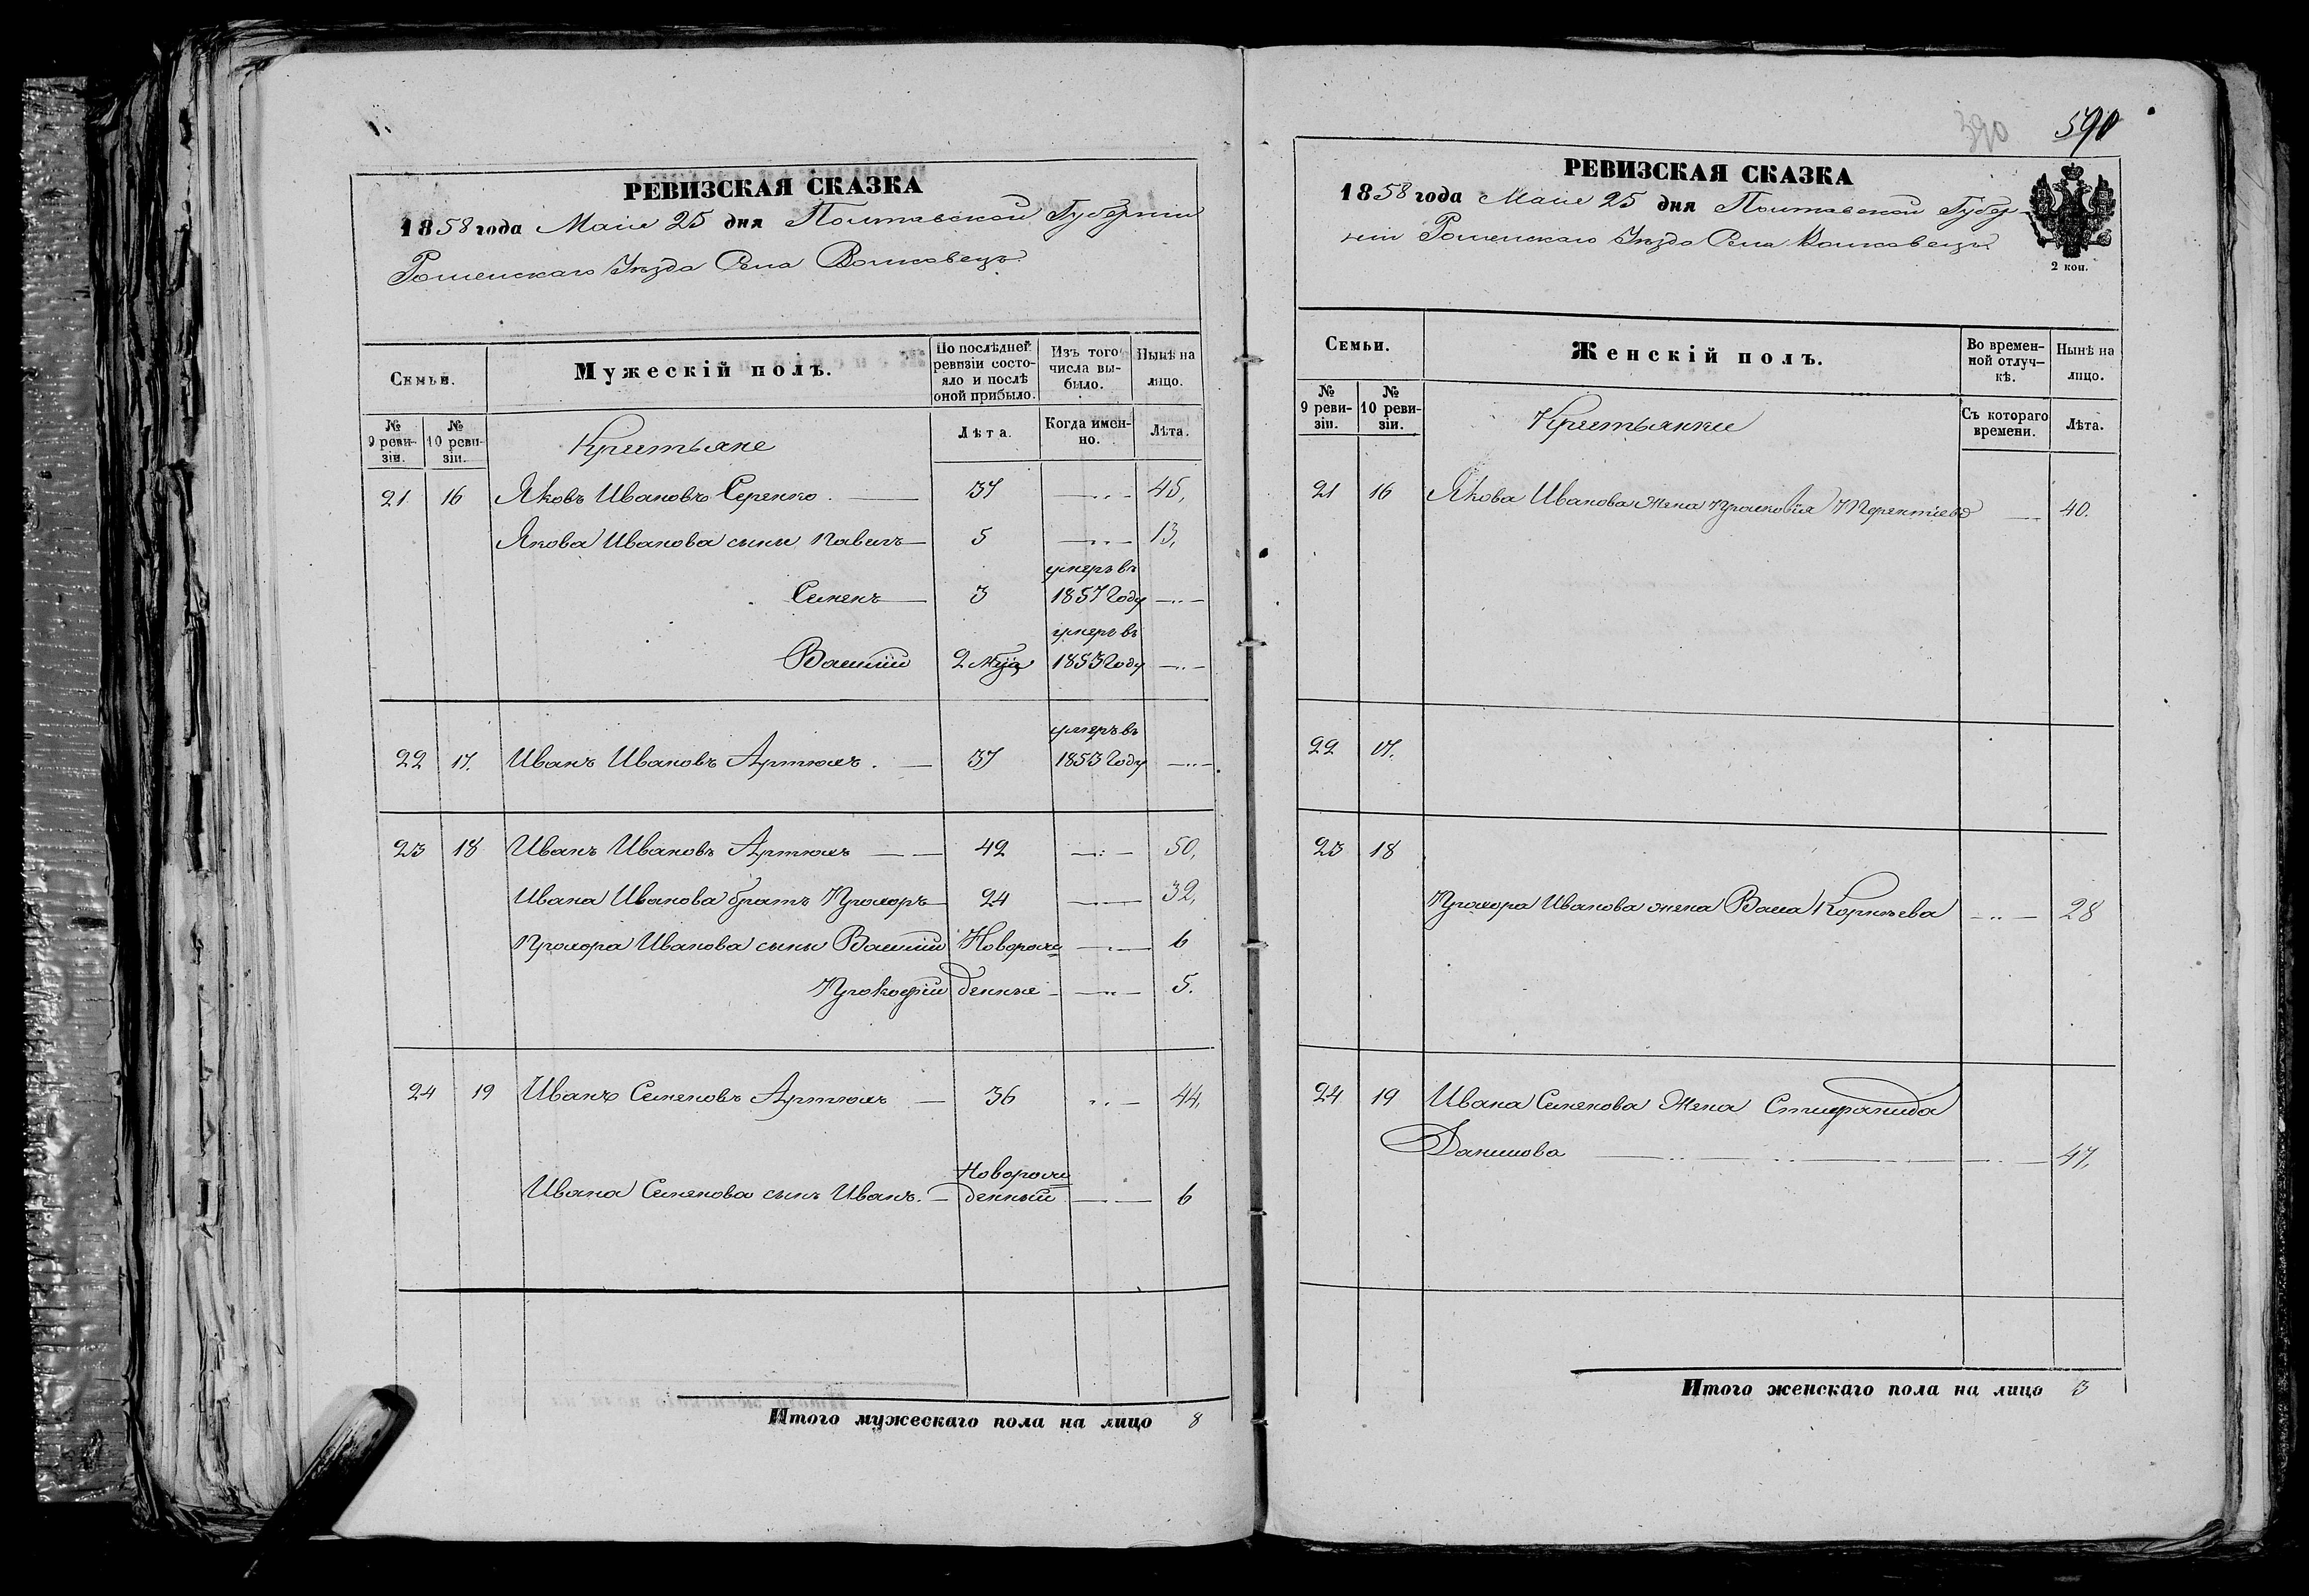 РЕВИЗСКАЯ СКАЗКА
1858 года Маія 25 дня Полтавской Губерніи
Роменскаго Уѣзда Села Волковецъ
Семьи.
Мужескій полъ.
По послѣдней ревизіи состояло и послѣ оной прибыло.
Изъ того числа выбыло.
Нынѣ на лицо.
№ 9 ревизіи.
№ 10 ревизіи.
Крестьяне
Лѣта.
Когда именно.
Лѣта.
21 16 Яковъ Ивановъ Серенко. 37 45,
Якова Иванова сыны Павелъ 5 13,
Семенъ 3 умеръ въ 1857 году
Василій 2 мѣца умеръ въ 1853 году
22 17. Иванъ Ивановъ Артюхъ. 37 умеръ въ 1853 году
23 18 Иванъ Ивановъ Артюхъ 42 50,
Ивана Иванова братъ Прохоръ 24 32,
Прохора Иванова сыны Василій Новорож= 6
Прокофій денные 5.
24 19 Иванъ Семеновъ Артюхъ 36 44,
Ивана Семенова сынъ Иванъ. Новорож= денный 6
Итого мужескаго пола на лицо 8
390
590
РЕВИЗСКАЯ СКАЗКА
1858 года Маія 25 дня Полтавской Губер-
ніи Роменскаго Уѣзда Села Волковецъ
2 коп.
Семьи.
Женскій полъ.
Во временной отлучкѣ.
Нынѣ на лицо.
№ 9 ревизіи.
№ 10 ревизіи.
Крестьянки
Съ котораго времени.
Лѣта.
21 16 Якова Иванова жена Прасковія Терентіева 40.
22 17.
23 18
Прохора Иванова жена Васа Корнѣева 28
24 19 Ивана Семенова жена Стефанида
Данилова 47,
Итого женскаго пола на лицо 3